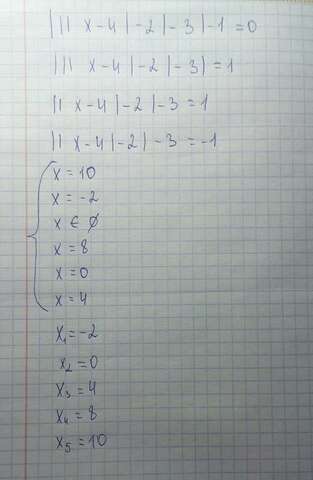 ||| x - 4 | - 2 | - 3 | - 1 = 0
||| x - 4 | - 2 | - 3 | = 1
|| x - 4 | - 2 | - 3 = 1
|| x - 4 | - 2 | - 3 = -1
x = 10
x = -2
x ∈ ∅
x = 8
x = 0
x = 4
x₁ = -2
x₂ = 0
x₃ = 4
x₄ = 8
x₅ = 10